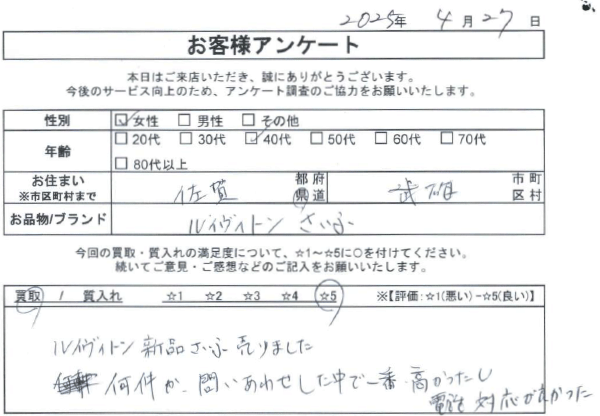 2025年 4月27日
お客様アンケート
本日はご来店いただき、誠にありがとうございます。
今後のサービス向上のため、アンケート調査のご協力をお願いいたします。
性別 ☑女性 □男性 □その他
年齢 □20代 □30代 ☑40代 □50代 □60代 □70代
□80代以上
お住まい
※市区町村まで 佐賀 都府県道 武雄 市町区村
お品物/ブランド ルイヴィトン さいふ
今回の買取・質入れの満足度について、☆1～☆5に○を付けてください。
続いてご意見・ご感想などのご記入をお願いいたします。
買取 / 質入れ ☆1 ☆2 ☆3 ☆4 ☆5 ※【評価:☆1(悪い)-☆5(良い)】
ルイヴィトン 新品さいふ 売りました
何件か、問いあわせした中で一番高かったし
電話対応が良かった